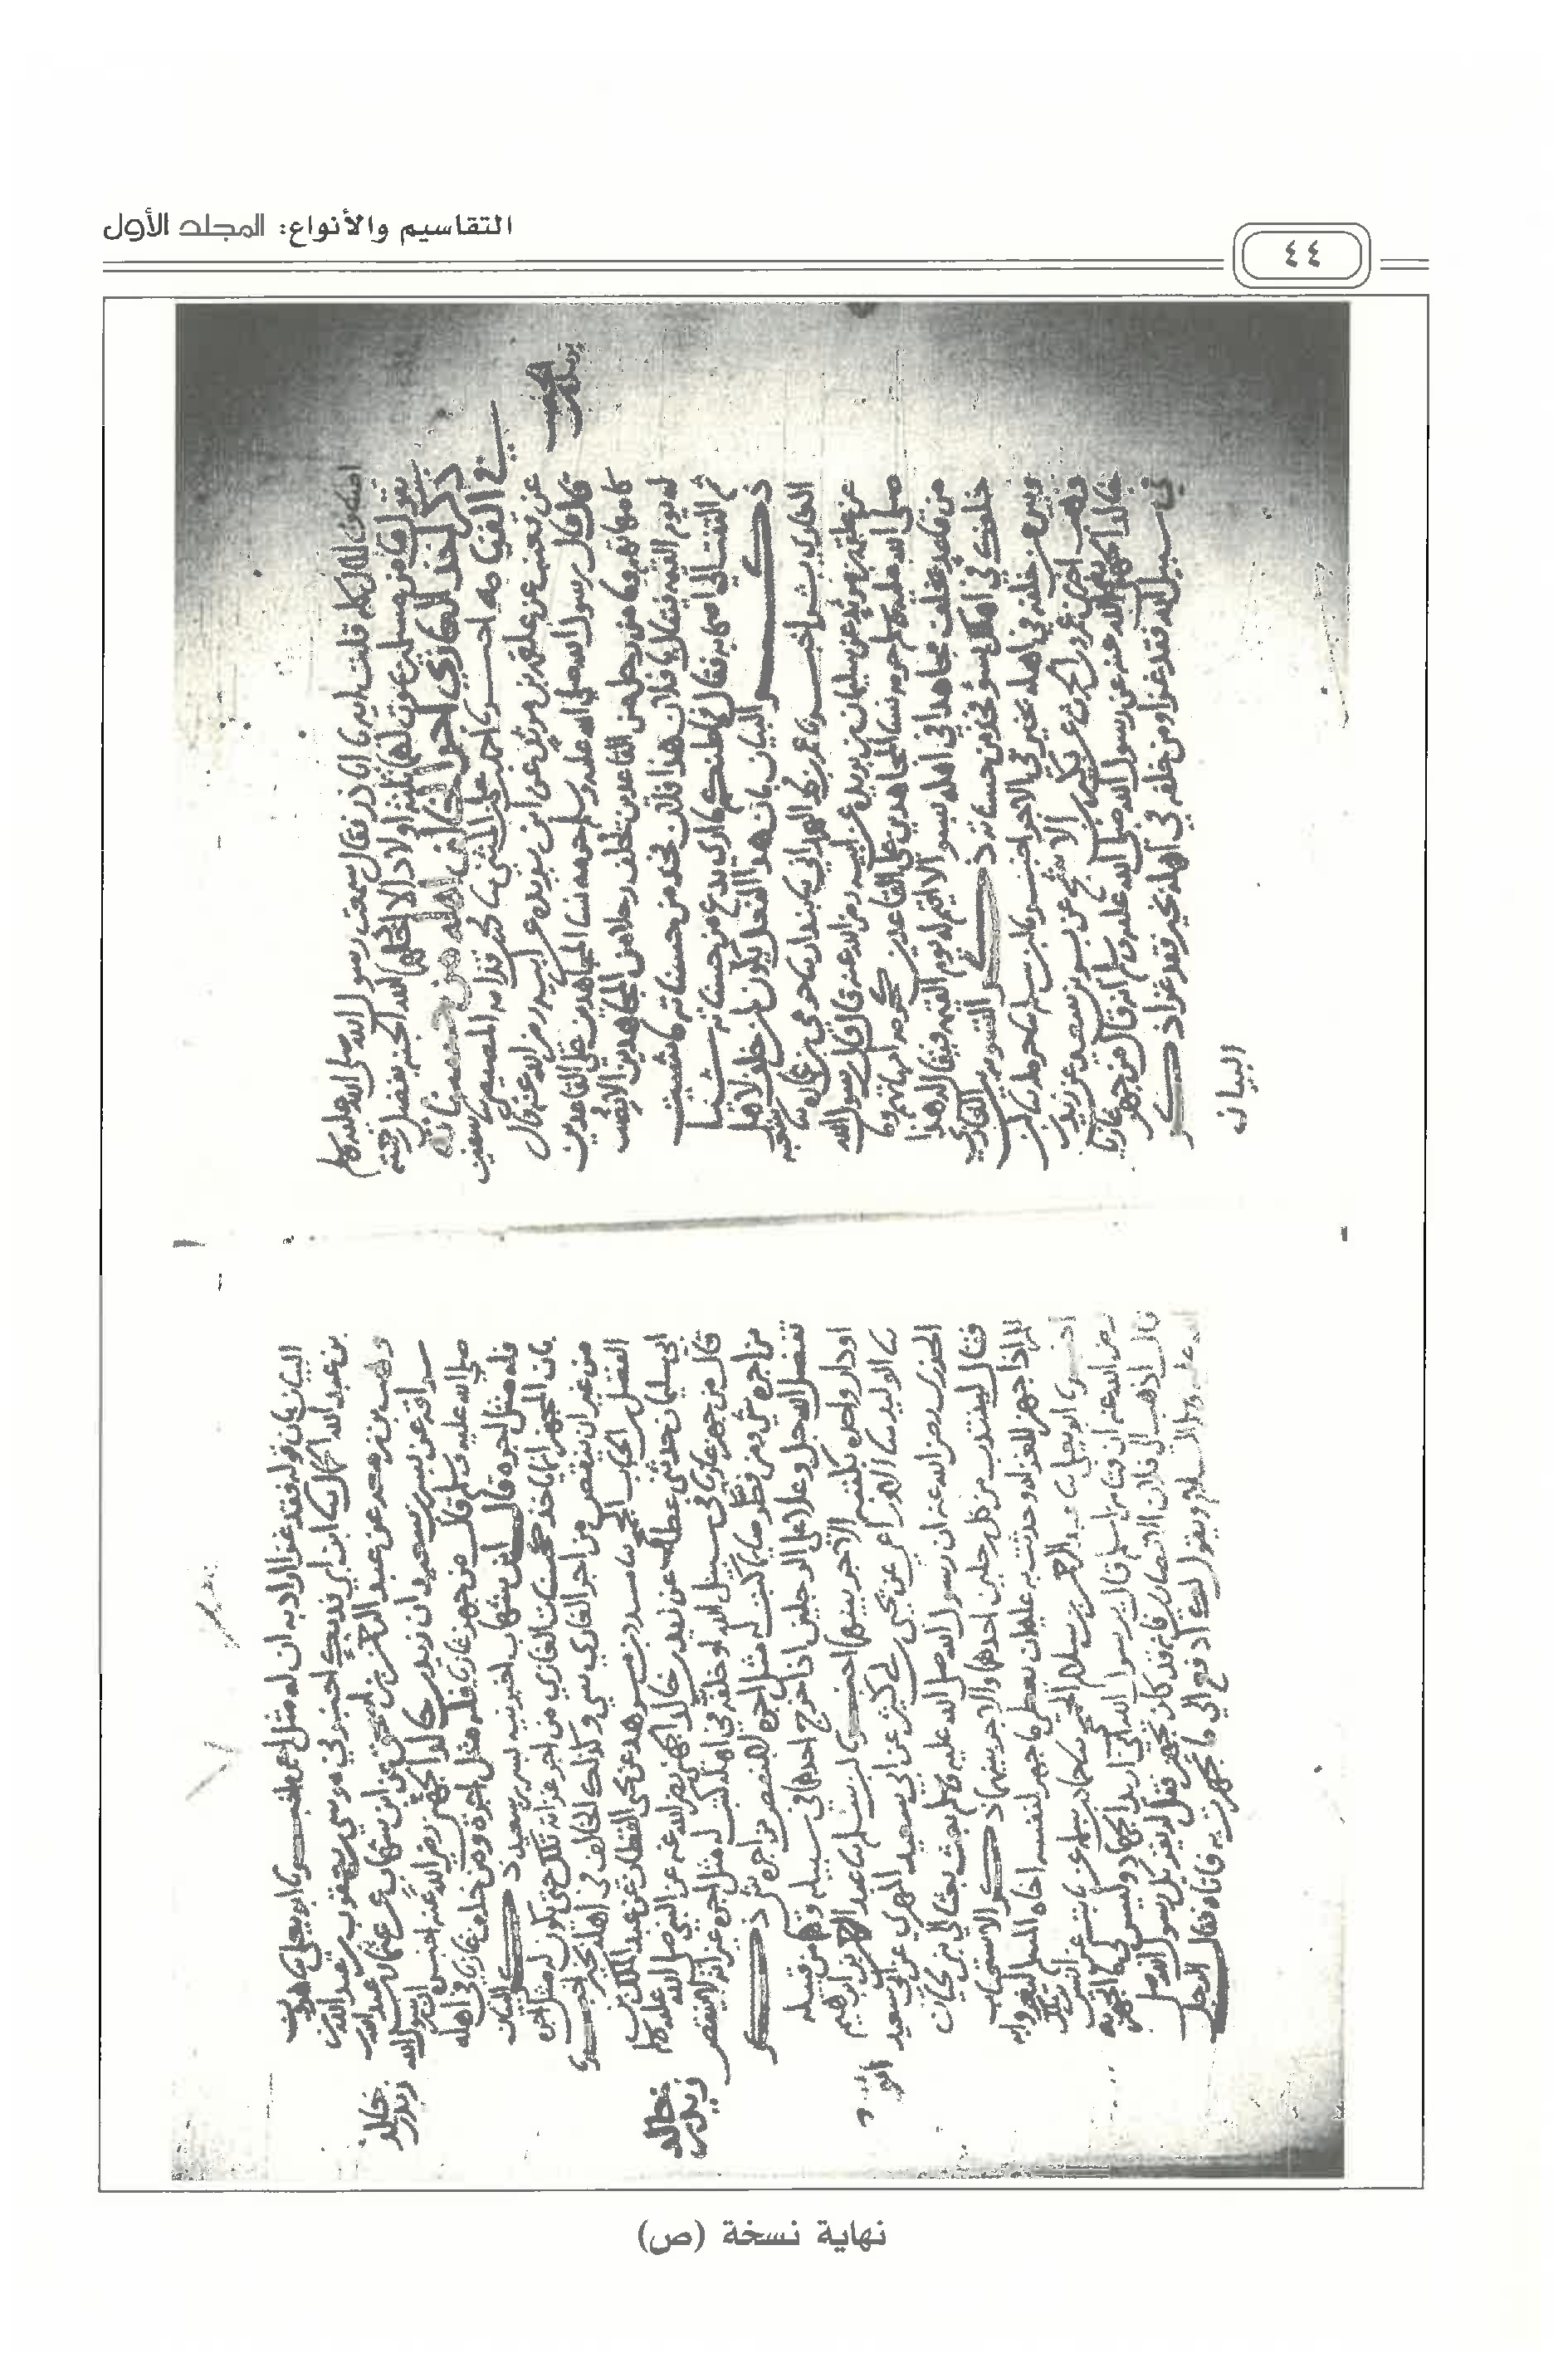 التقاسيم والأنواع: المجلد الأول
٤٤
قلت ايه يا ابا ذر فقال سمعت رسول الله صلى الله عليه وسلم
يقول ما من مسلمين يموت لهما ثلثه اولاد الا ادخلهما الله الجنه بفضل رحمته
ذكر اخذ الغازي اجر الخالف اهله من حسناته
في القيامه اخبرنا احمد بن علي بن المثنى محمد بن قدامه المصيصي سفين
عن قعنب عن علقمه بن مرثد عن ابن بريده عن ابيه رضي الله عنه قال
قال رسول الله صلى الله عليه وسلم حرمه نسا المجاهدين على القاعدين
كامهاتهم وما من رجل من القاعدين يخلف رجلا من المجاهدين الا نصب
له يوم القيمه فيقال يا فلان هذا فلان فخذ من حسناته ما شئت
ثم التفت الى اصحابه فقال ما ظنكم ما ارى يدع من حسناته شيئا
ذكر البيان بان هذا الفعل يكون لمن خلف لاهل
الغازي بشر اخبرنا عمر بن محمد الهمداني بندار حرمي بن عماره شعبه
عن علقمه بن مرثد عن سليمان بن بريده عن ابيه رضي الله عنه قال قال رسول الله
صلى الله عليه وسلم حرمه نسا المجاهدين على القاعدين كحرمه امهاتهم وما
من قاعد يخلف مجاهدا في اهله بسوء الا اقيم له يوم القيمه فيقال له هذا
خلفك في اهلك بسوء فخذ من حسناته ذكر التسويه بين الغازي
وبين من خلفه في اهله بخير في الاجر اخبرنا ابن سلم حرمله ابن
وهب اخبرني عمرو بن الحرث عن بكير بن الاشج عن بسر بن سعيد عن زيد بن
خالد الجهني رضي الله عنه عن رسول الله صلى الله عليه وسلم انه قال من جهز غازيا
في سبيل الله فقد غزا ومن خلفه في اهله بخير فقد غزا ذكر
البيان
البيان بان قوله فقد غزا اراد به ان له مثل اجر اخبرنا ابو يعلى هرون
بن عبد الله الحمال ابن ابي فديك اخبرني موسى بن يعقوب بن عبد الله بن
وهب بن زمعه عن عبد الرحمن بن اسحق عن ابن شهاب عن عثمان بن عبد الله بن
سراقه عن بسر بن سعيد ان زيد بن خالد الجهني رضي الله عنه اخبره ان رسول الله
صلى الله عليه وسلم قال من جهز غازيا فله مثل اجره ومن خلف غازيا في اهله
فله مثل اجره قال ابن شهاب اخبرنيه بسر بن سعيد ذكر البيان
بان المجهز انما ياخذ كحسنات الغازي من اجر غزاته تلك حتى يكون له مثل اجره
من غير ان ينقص من اجر الغازي شي وكذلك الخالف في اهله بخير اخبرنا
الفضل بن الحباب الجمحي مسدد بن مسرهد عن يحيى القطان عن عبد الملك بن
ابي سليمان حدثني عطاء عن زيد بن خالد الجهني رضي الله عنه عن النبي صلى الله عليه وسلم
قال من جهز غازيا في سبيل الله او خلفه في اهله كتب له مثل اجره غير انه لا ينقص
من اجره شي ومن فطر صايما كتب له مثل اجره لا ينقص من اجره شي ذكر
تفضل الله جل وعلا على الرجلين اذا خرج احدهما في سبيله وهما من قبيله
او دار واحده بكتبه الاجر بينهما اخبرنا ابن سلم عبد الرحمن بن ابرهيم
الوليد الاوزاعي عن يحيى بن ابي كثير عن ابي سعيد المهري عن ابي سعيد
الخدري رضي الله عنه ان رسول الله صلى الله عليه وسلم بعث بعثا الى بني لحيان
فقال لينتدب من كل رجلين احدهما والاجر بينهما ذكر الاستحباب
للمرء اذا جهز للغزاه وحدثت به عله ان يعطي ما جهز لنفسه اخاه المسلم ليغزو به
اخبرنا ابو يعلى عبد الرحمن بن سلام الجمحي حماد بن سلمه عن ثابت عن انس بن مالك
رضي الله عنه ان فتا من اسلم قال يرسول الله اني اريد الجهاد وليس لي ما اتجهز به
قال اذهب الى فلان الانصاري فانه قد كان تجهز فقل له يقريك رسول الله صلى
الله عليه وسلم السلام ويقول لك ادفع الي ما تجهزت به فاتاه فقال الرجل
خالد
زيد بن
خالد
زيد بن
نهاية نسخة (ص)